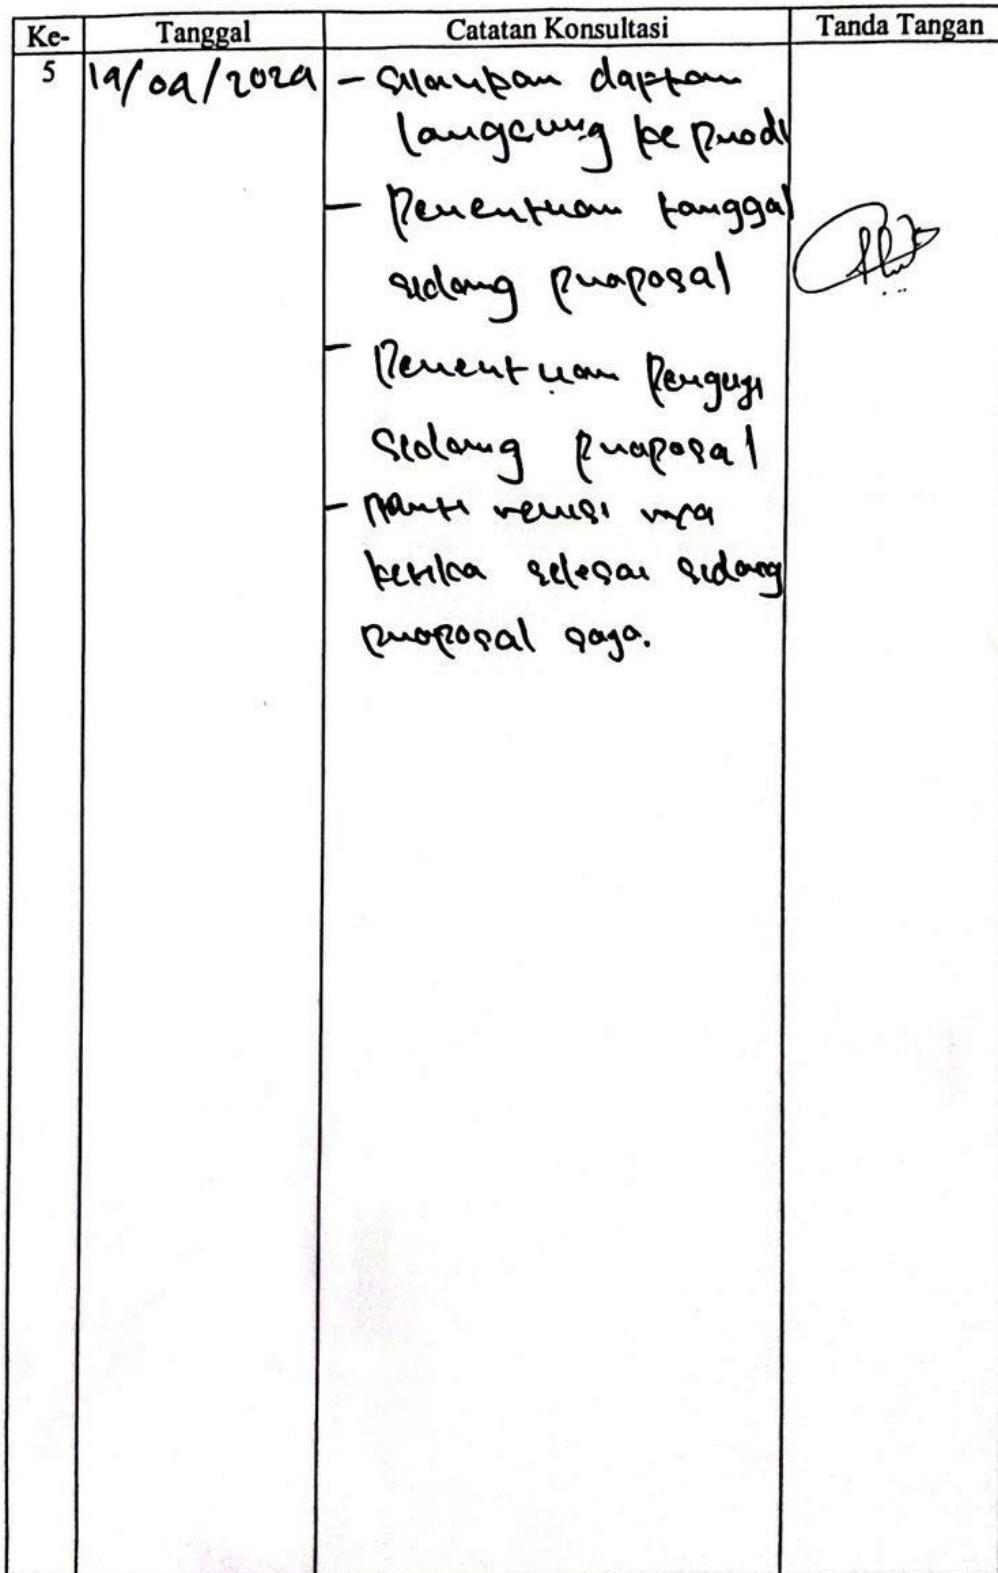 Ke- Tanggal Catatan Konsultasi Tanda Tangan
5 19/04/2024 - Silahkan daftar
langsung ke prodi
- Penentuan tanggal
sidang proposal
- Penentuan Penguji
Sidang proposal
- Nanti revisi nya
ketika selesai sidang
proposal saja.